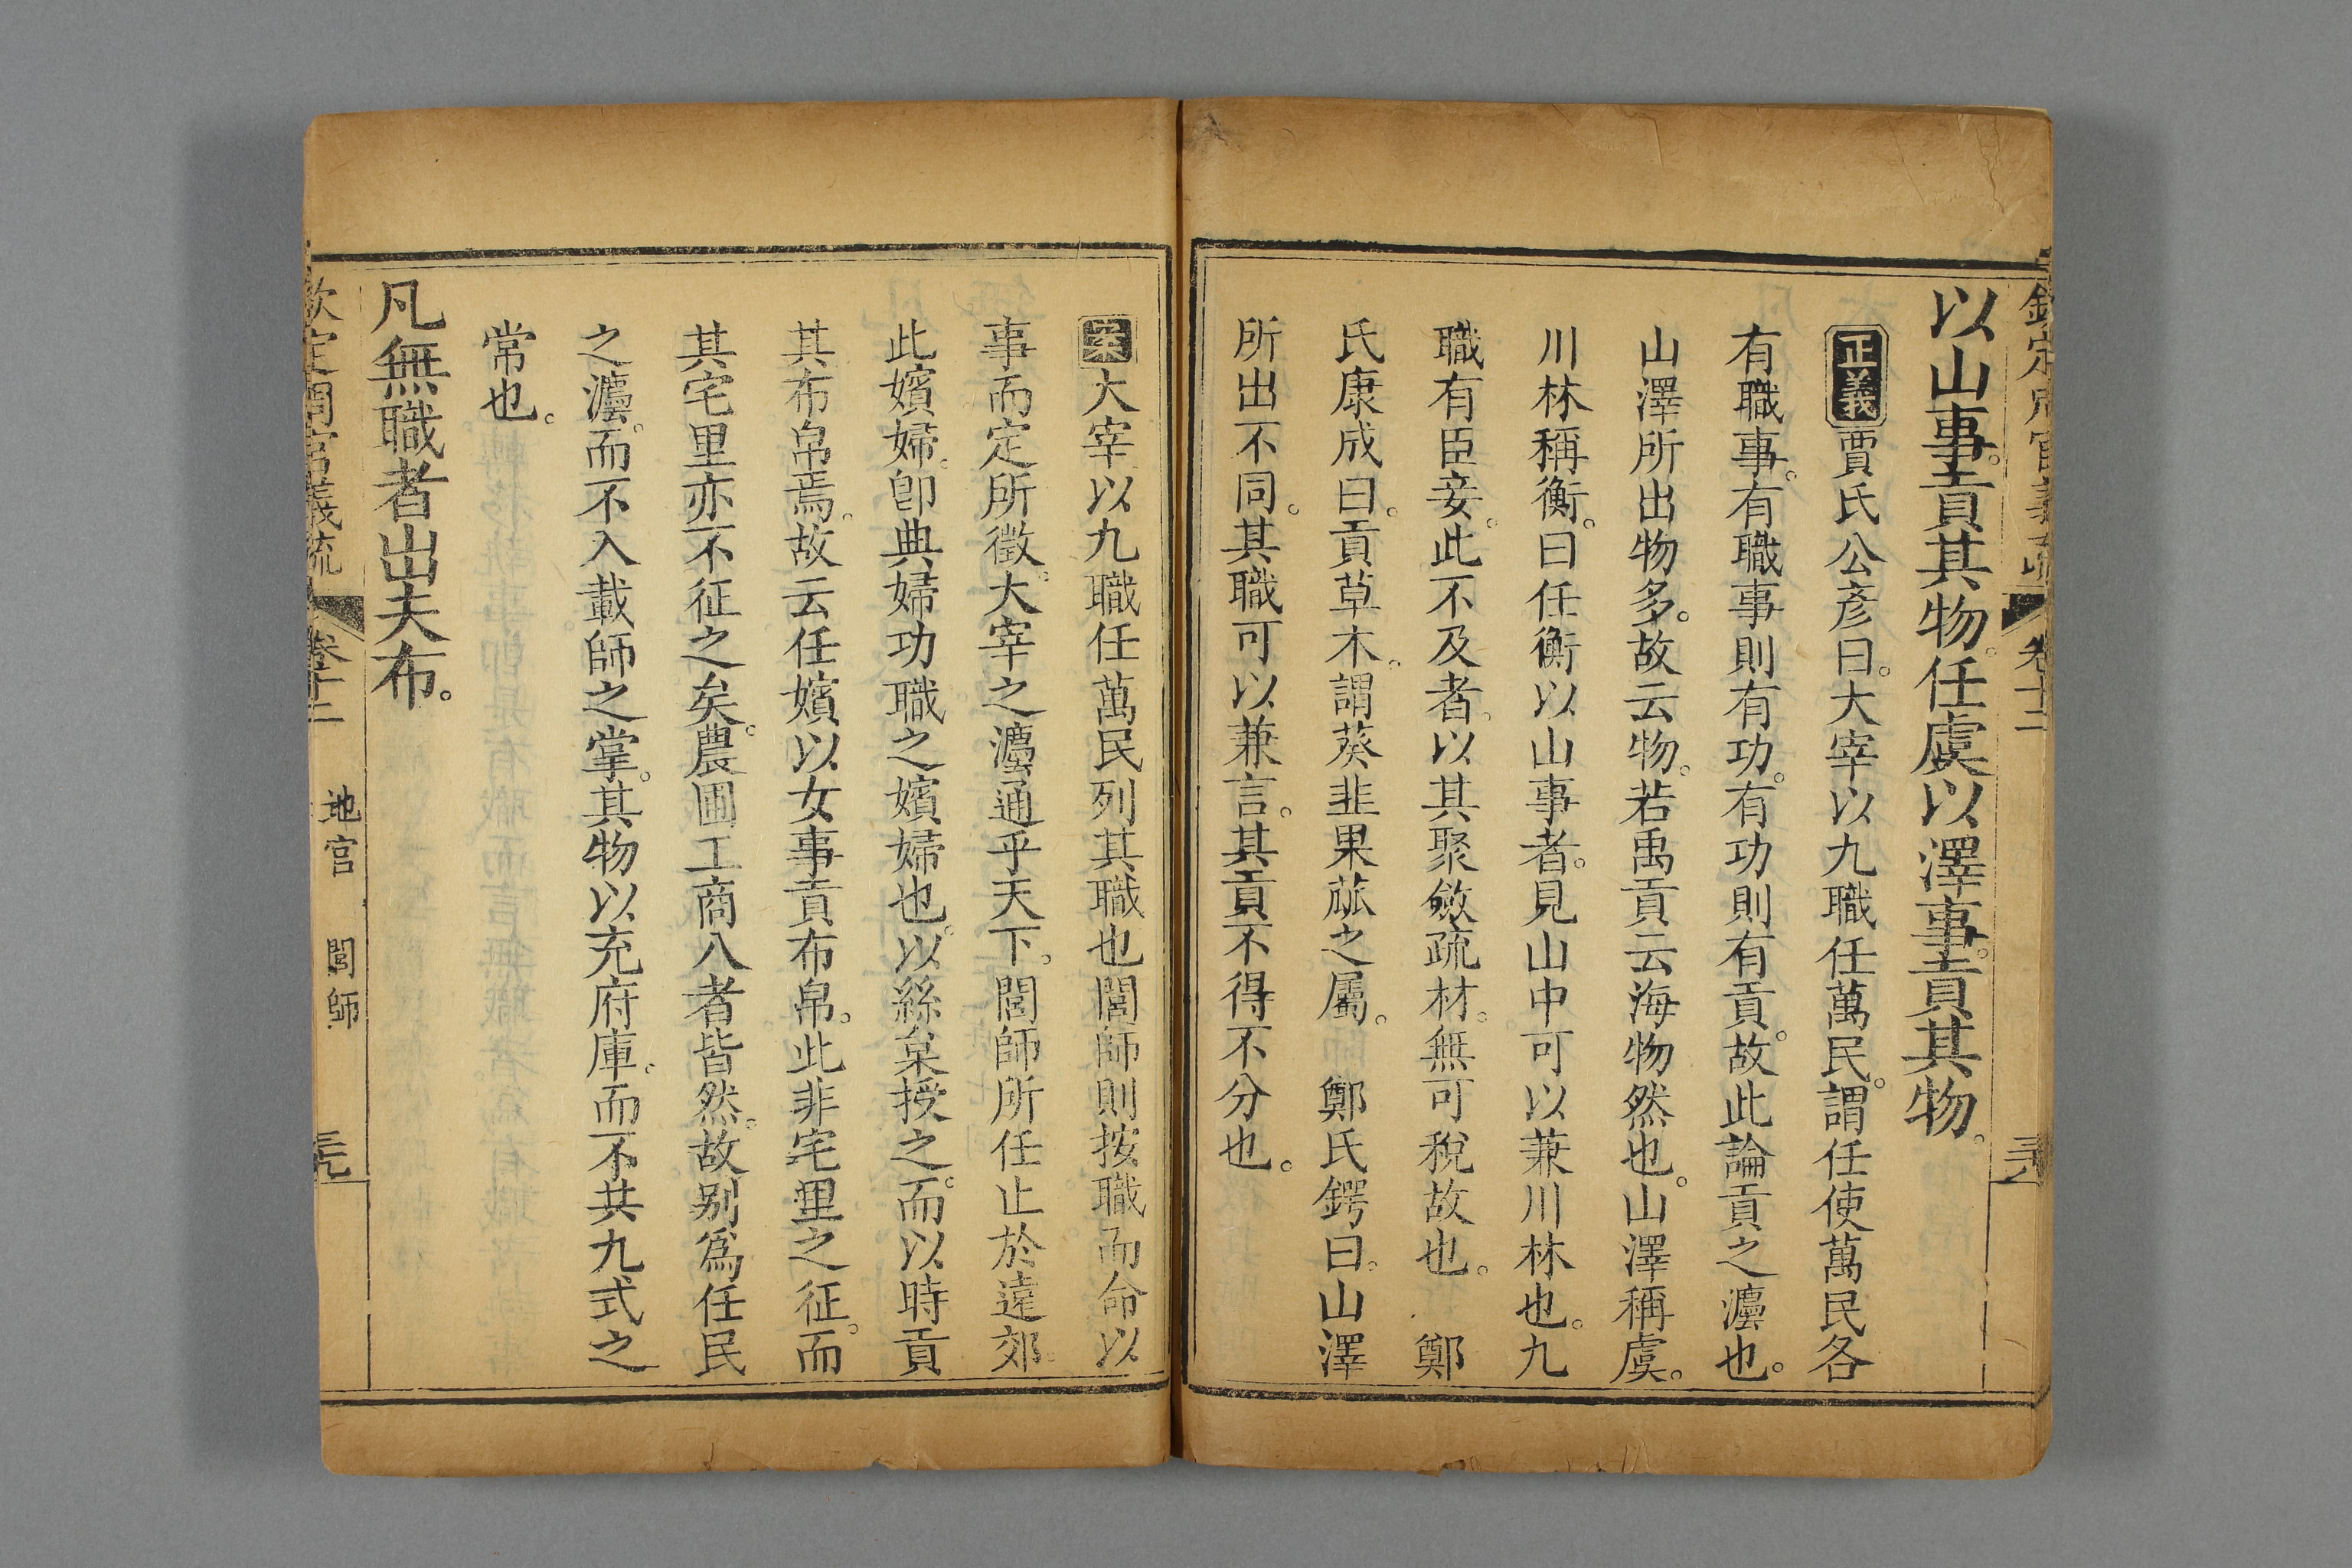 欽定周官義疏 卷十二
以山事。貢其物。任虞以澤事。貢其物。
正義 賈氏公彥曰。大宰以九職任萬民。謂任使萬民各
有職事。有職事則有功。有功則有貢。故此論貢之灋也。
山澤所出物多。故云物。若禹貢云海物然也。山澤稱虞。
川林稱衡。曰任衡以山事者。見山中可以兼川林也。九
職有臣妾。此不及者。以其聚斂疏材。無可稅故也。 鄭
氏康成曰。貢草木。謂葵韭果蓏之屬。 鄭氏鍔曰。山澤
所出不同。其職可以兼言。其貢不得不分也。
案 大宰以九職任萬民列其職也閭師則按職而命以
事而定所徵。大宰之灋通乎天下。閭師所任止於遠郊。
此嬪婦。卽典婦功職之嬪婦也。以絲枲授之。而以時貢
其布帛焉。故云任嬪以女事貢布帛。此非宅里之征。而
其宅里亦不征之矣。農圃工商八者皆然。故別爲任民
之灋。而不入載師之掌。其物以充府庫。而不共九式之
常也。
凡無職者出夫布。
欽定周官義疏 卷十二 地官 閭師